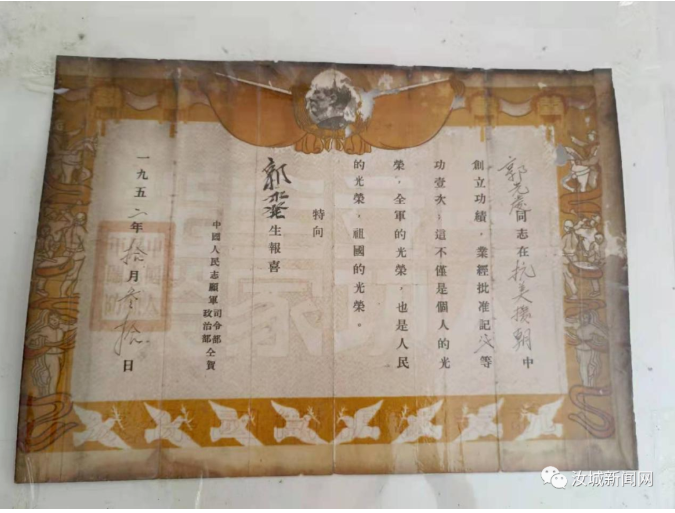 郭元喬同志在抗美援朝中
創立功績，業經批准記叁等
功壹次；這不僅是個人的光
榮，全軍的光榮，也是人民
的光榮，祖國的光榮。
特向
郭 生報喜
中國人民志願軍司令部
政治部仝賀
一九五二年拾月叁拾日
汝城新闻网